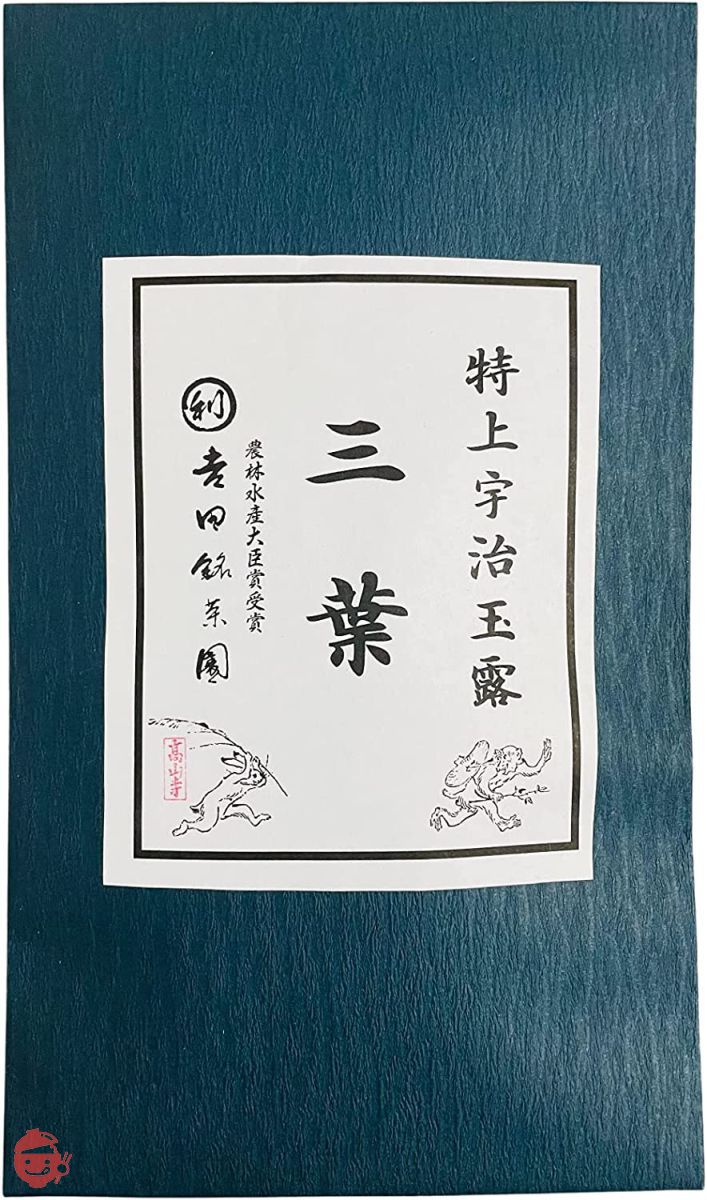 特上宇治玉露
三葉
農林水産大臣賞受賞
利
吉田銘茶園
高山寺